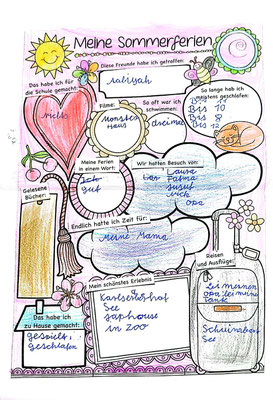 Meine Sommerferien
Diese Freunde habe ich getroffen:
aaliyah
Das habe ich für
die Schule gemacht:
nichts
Filme:
Monster
Haus
So oft war ich
schwimmen:
dreimal
So lange hab ich
meistens geschlafen:
Bis
Bis 10
Bis 8
Bis 12
Meine Ferien
in einem Wort:
gut
Wir hatten Besuch von:
Laura
Fatma
jusuf
mich
opa
Gelesene
Bücher:
Endlich hatte ich Zeit für:
meine Mama
Reisen
und Ausflüge:
Bei meinen
opa bei meine
Tante
See
Mein schönstes Erlebnis
Karlserdhof
See
japhouse
in zoo
Das habe ich
zu Hause gemacht:
gespielt
geschlafen